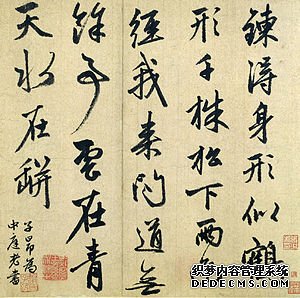 鍊得身形似鶴
形千株松下兩函
經我来問道無
餘事雲在青
天水在缾
子昂為
中庭老書
织梦内容管理系统
DEDECMS.COM